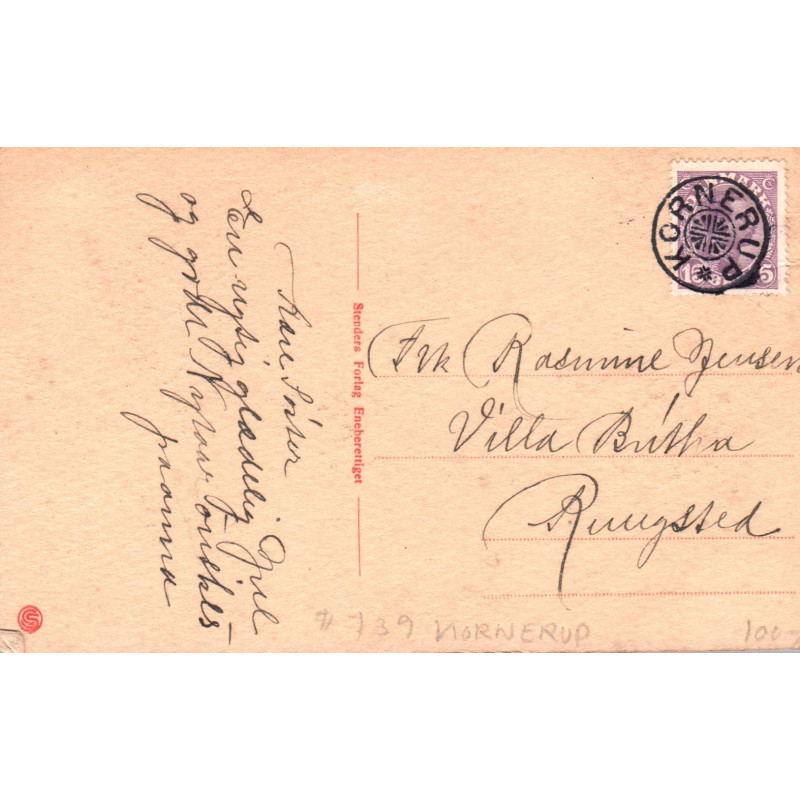 Kære Søster
En rigtig glædelig Jul
og godt Nytaar Ønskes
Stenders Forlag Eneberettiget
DANMARK
15 15
KORNERUP
Frk Rasmine Jensen
Villa Birtha
Rungsted
# 739 KORNERUP
100-